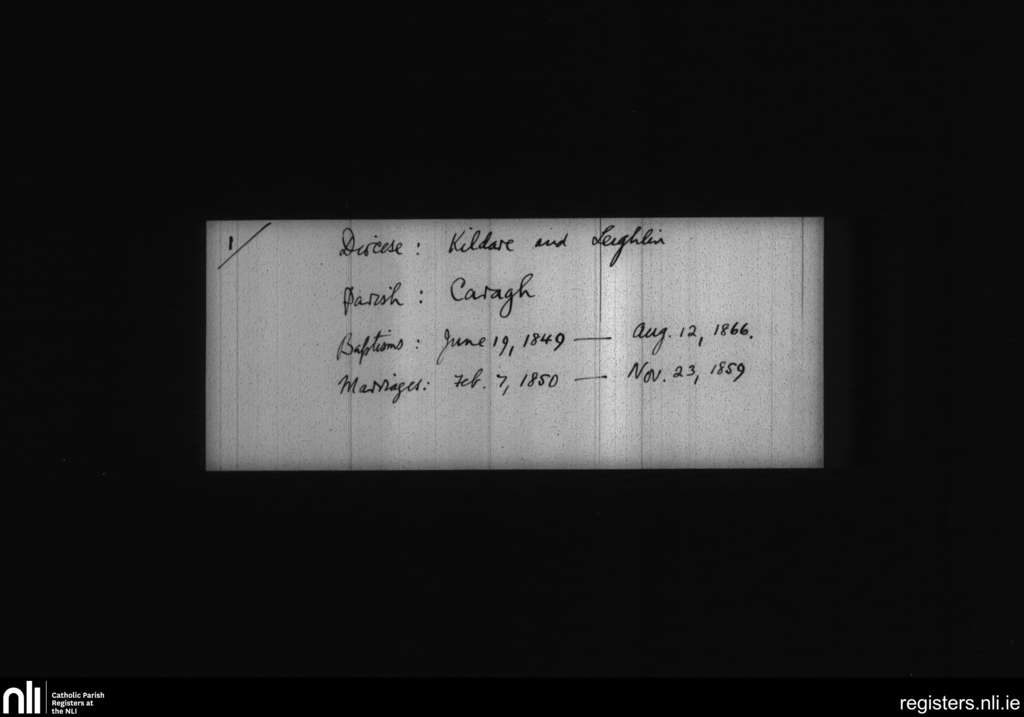 1/
Diocese: Kildare and Leighlin
Parish: Caragh
Baptisms: June 19, 1849 — Aug. 12, 1866.
Marriages: Feb. 7, 1850 — Nov. 23, 1859
nli
Catholic Parish
Registers at
the NLI
registers.nli.ie